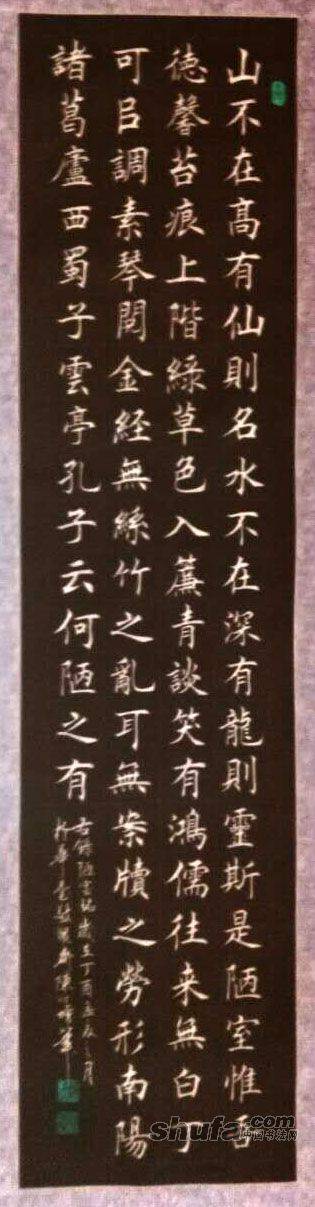 山不在高有仙則名水不在深有龍則靈斯是陋室惟吾
徳馨苔痕上階綠草色入簾青談笑有鴻儒往来無白丁
可㠯調素琴閲金経無絲竹之亂耳無案牘之勞形南陽
諸葛廬西蜀子雲亭孔子云何陋之有
右錄陋室銘歲在丁酉孟夏之月
shufa.com
中国书法网